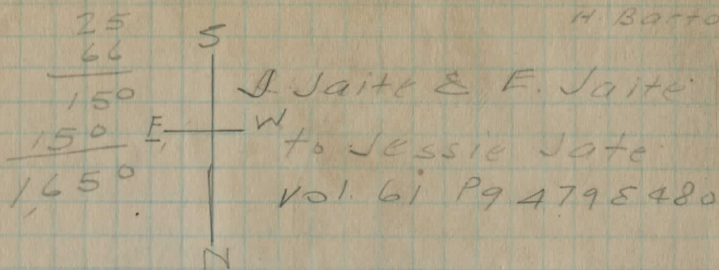 H. Barto
25
66
150
150
1,650
S
E
W
N
J. Jaite & E. Jaite
to Jessie Jate
Vol. 61 Pg 479 & 480